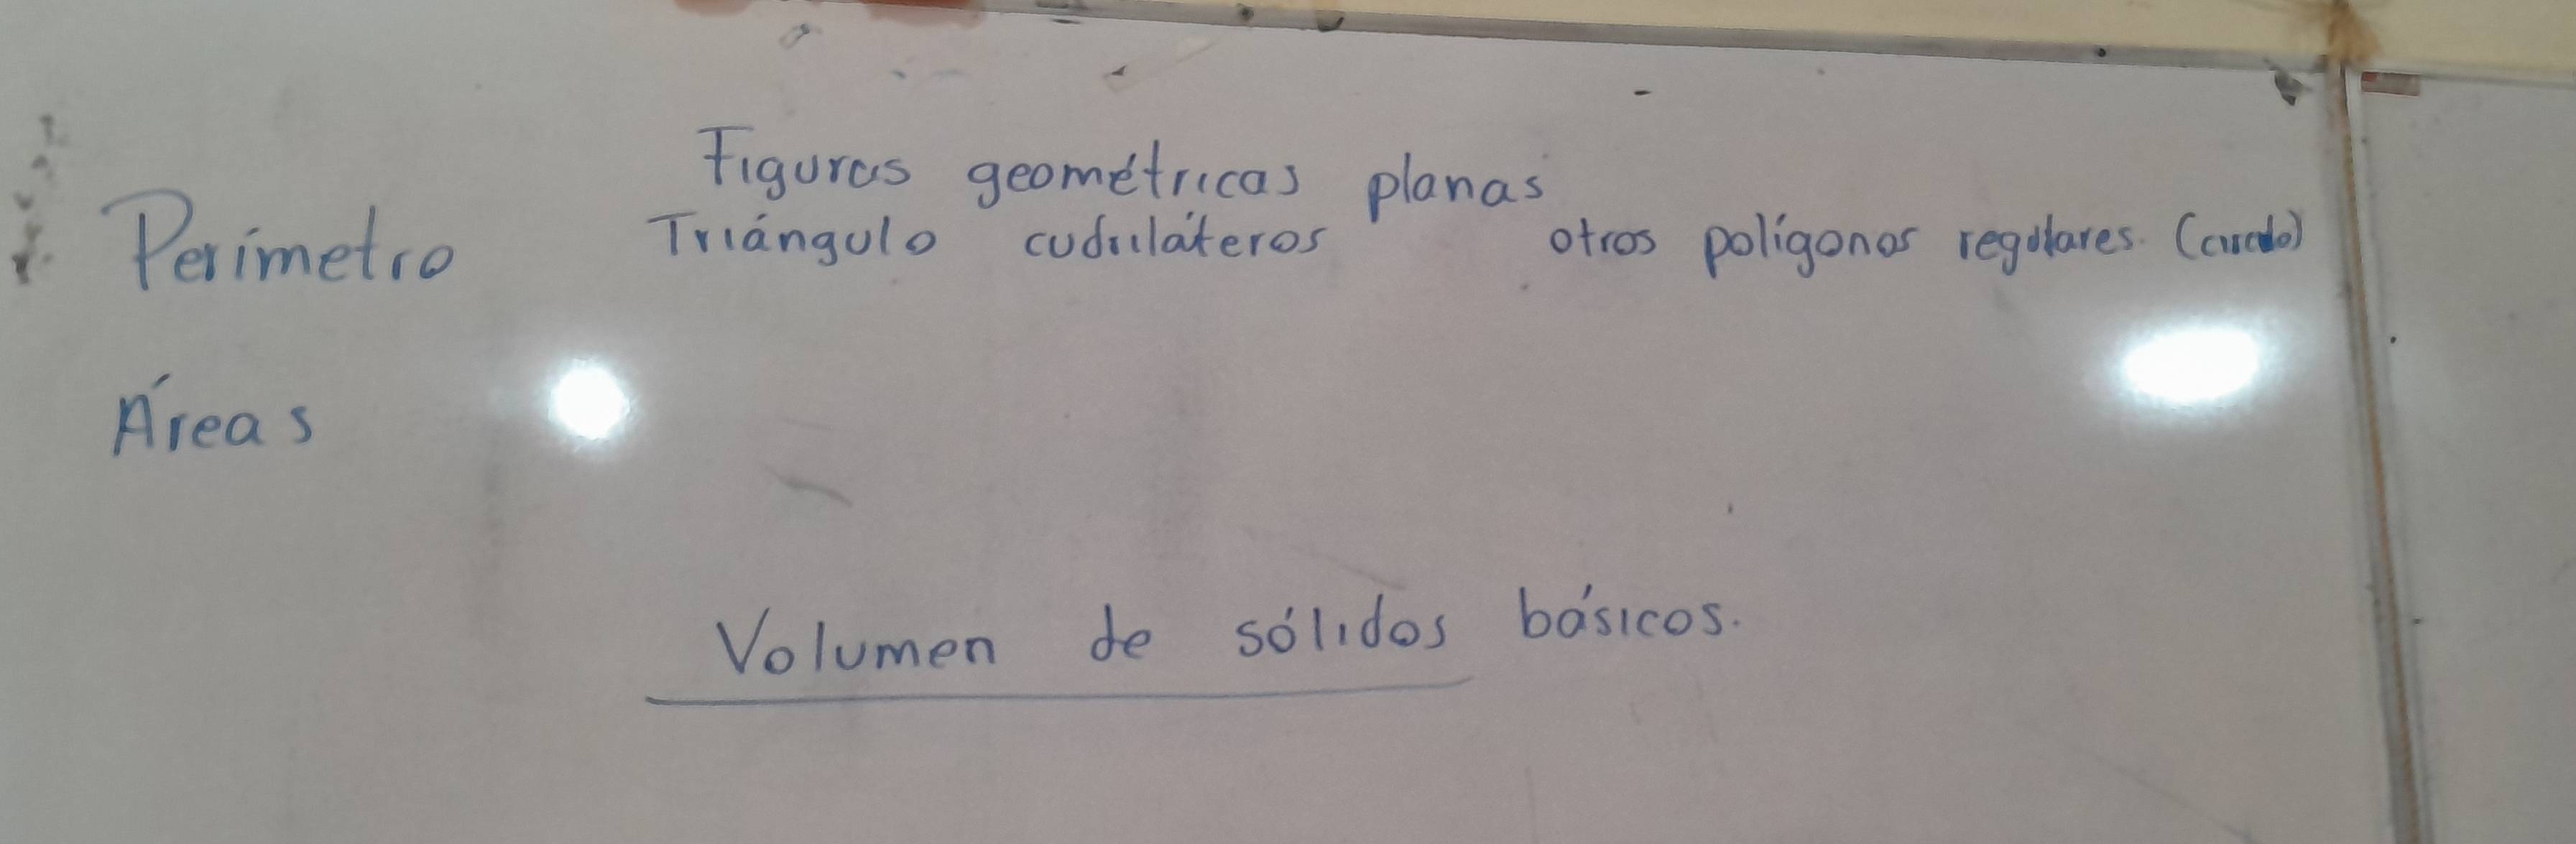 Figuras geométricas planas
Perímetro Triángulo cudriláteros otros polígonos regulares. (circulo)
Áreas
Volumen de sólidos básicos.